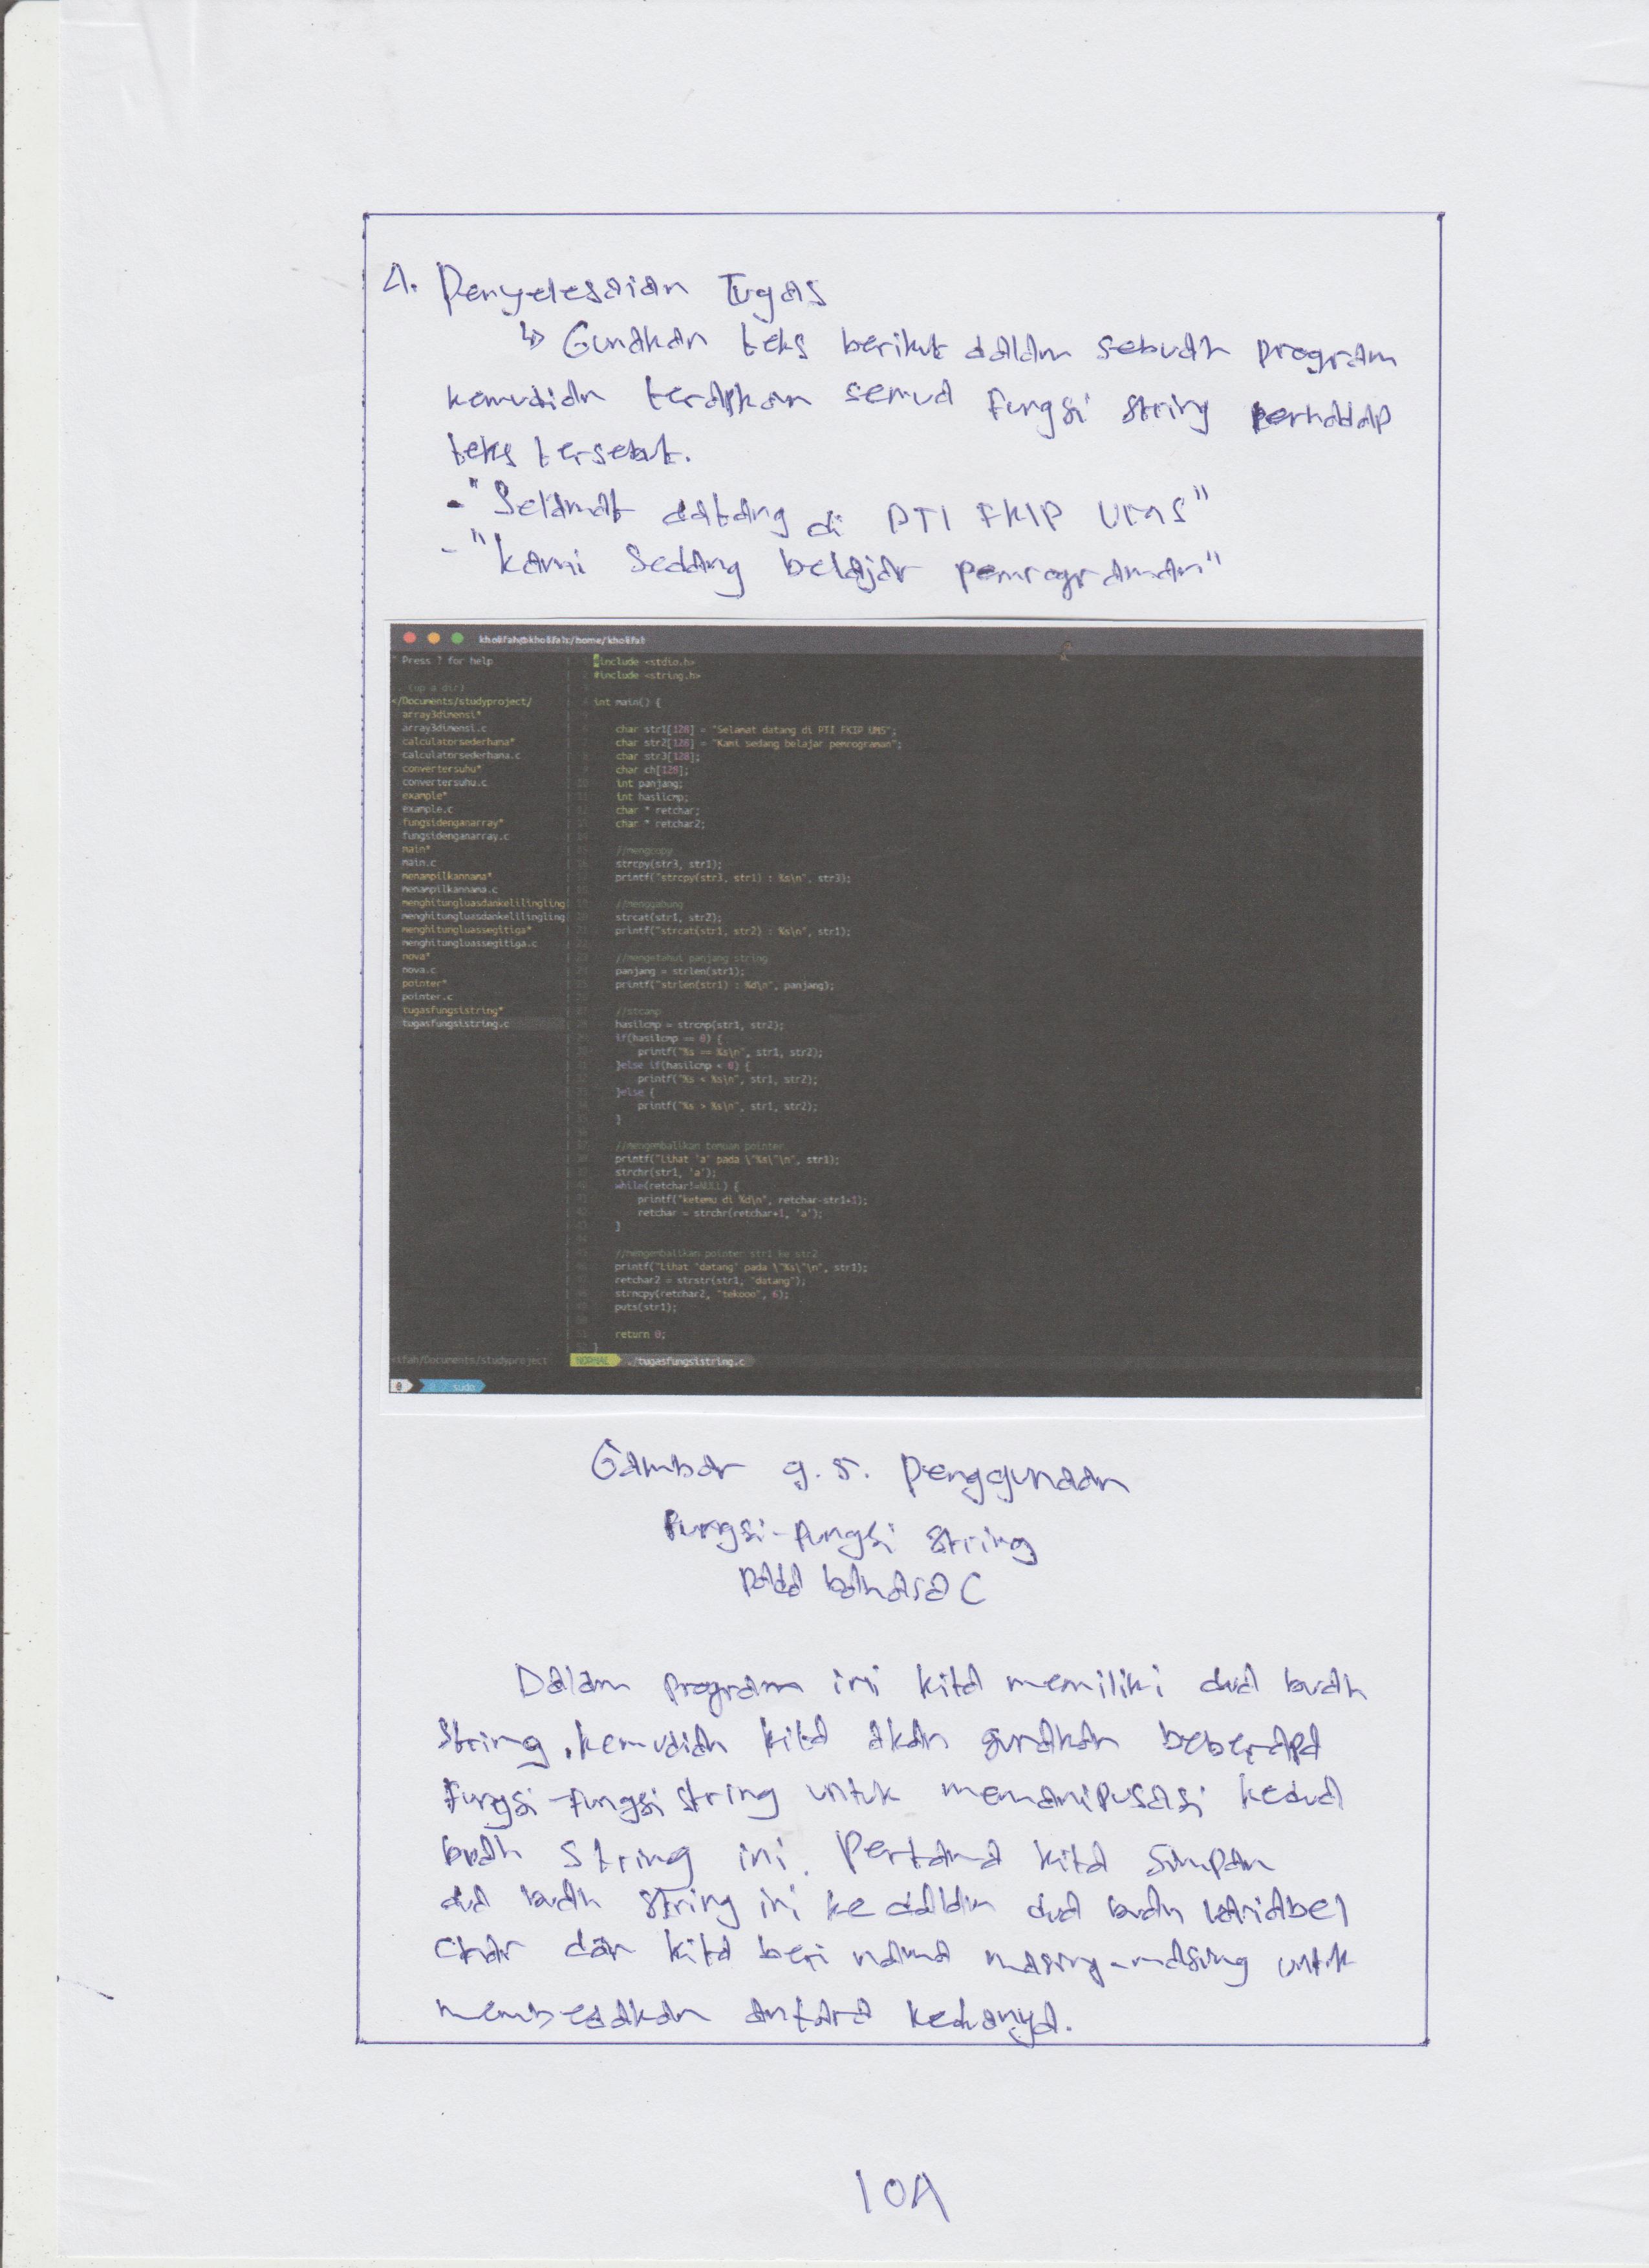 4. Penyelesaian Tugas
↳ Gunakan teks berikut dalam sebuah program
kemudian terapkan semua fungsi string terhadap
teks tersebut.
- "Selamat datang di PTI FKIP UMS"
- "Kami sedang belajar pemrograman"
kholifah@kholifah:/home/kholifah
" Press ? for help
.. (up a dir)
</Documents/studyproject/
array3dimensi*
array3dimensi.c
calculatorsederhana*
calculatorsederhana.c
convertersuhu*
convertersuhu.c
example*
example.c
fungsidenganarray*
fungsidenganarray.c
main*
main.c
menampilkannama*
menampilkannama.c
menghitungluasdankelilingling
menghitungluasdankelilingling
menghitungluassegitiga*
menghitungluassegitiga.c
nova*
nova.c
pointer*
pointer.c
tugasfungsistring*
tugasfungsistring.c
<ifah/Documents/studyproject
#include <stdio.h>
#include <string.h>
int main() {
char str1[128] = "Selamat datang di PTI FKIP UMS";
char str2[128] = "Kami sedang belajar pemrograman";
char str3[128];
char ch[128];
int panjang;
int hasilcmp;
char * retchar;
char * retchar2;
//mengcopy
strcpy(str3, str1);
printf("strcpy(str3, str1) : %s\n", str3);
//menggabung
strcat(str1, str2);
printf("strcat(str1, str2) : %s\n", str1);
//mengetahui panjang string
panjang = strlen(str1);
printf("strlen(str1) : %d\n", panjang);
//strcmp
hasilcmp = strcmp(str1, str2);
if(hasilcmp == 0) {
printf("%s == %s\n", str1, str2);
}else if(hasilcmp < 0) {
printf("%s < %s\n", str1, str2);
}else {
printf("%s > %s\n", str1, str2);
}
//mengembalikan temuan pointer
printf("Lihat 'a' pada \"%s\"\n", str1);
strchr(str1, 'a');
while(retchar!=NULL) {
printf("ketemu di %d\n", retchar-str1+1);
retchar = strchr(retchar+1, 'a');
}
//mengembalikan pointer str1 ke str2
printf("Lihat 'datang' pada \"%s\"\n", str1);
retchar2 = strstr(str1, "datang");
strncpy(retchar2, "tekooo", 6);
puts(str1);
return 0;
}
NORMAL ./tugasfungsistring.c
0 sudo
Gambar 9.5. Penggunaan
Fungsi-fungsi String
pada bahasa C
Dalam program ini kita memiliki dua buah
string, kemudian kita akan gunakan beberapa
fungsi-fungsi string untuk memanipusasi kedua
buah string ini. Pertama kita simpan
dua buah string ini ke dalam dua buah variabel
char dan kita beri nama masing-masing untuk
membedakan antara keduanya.
104